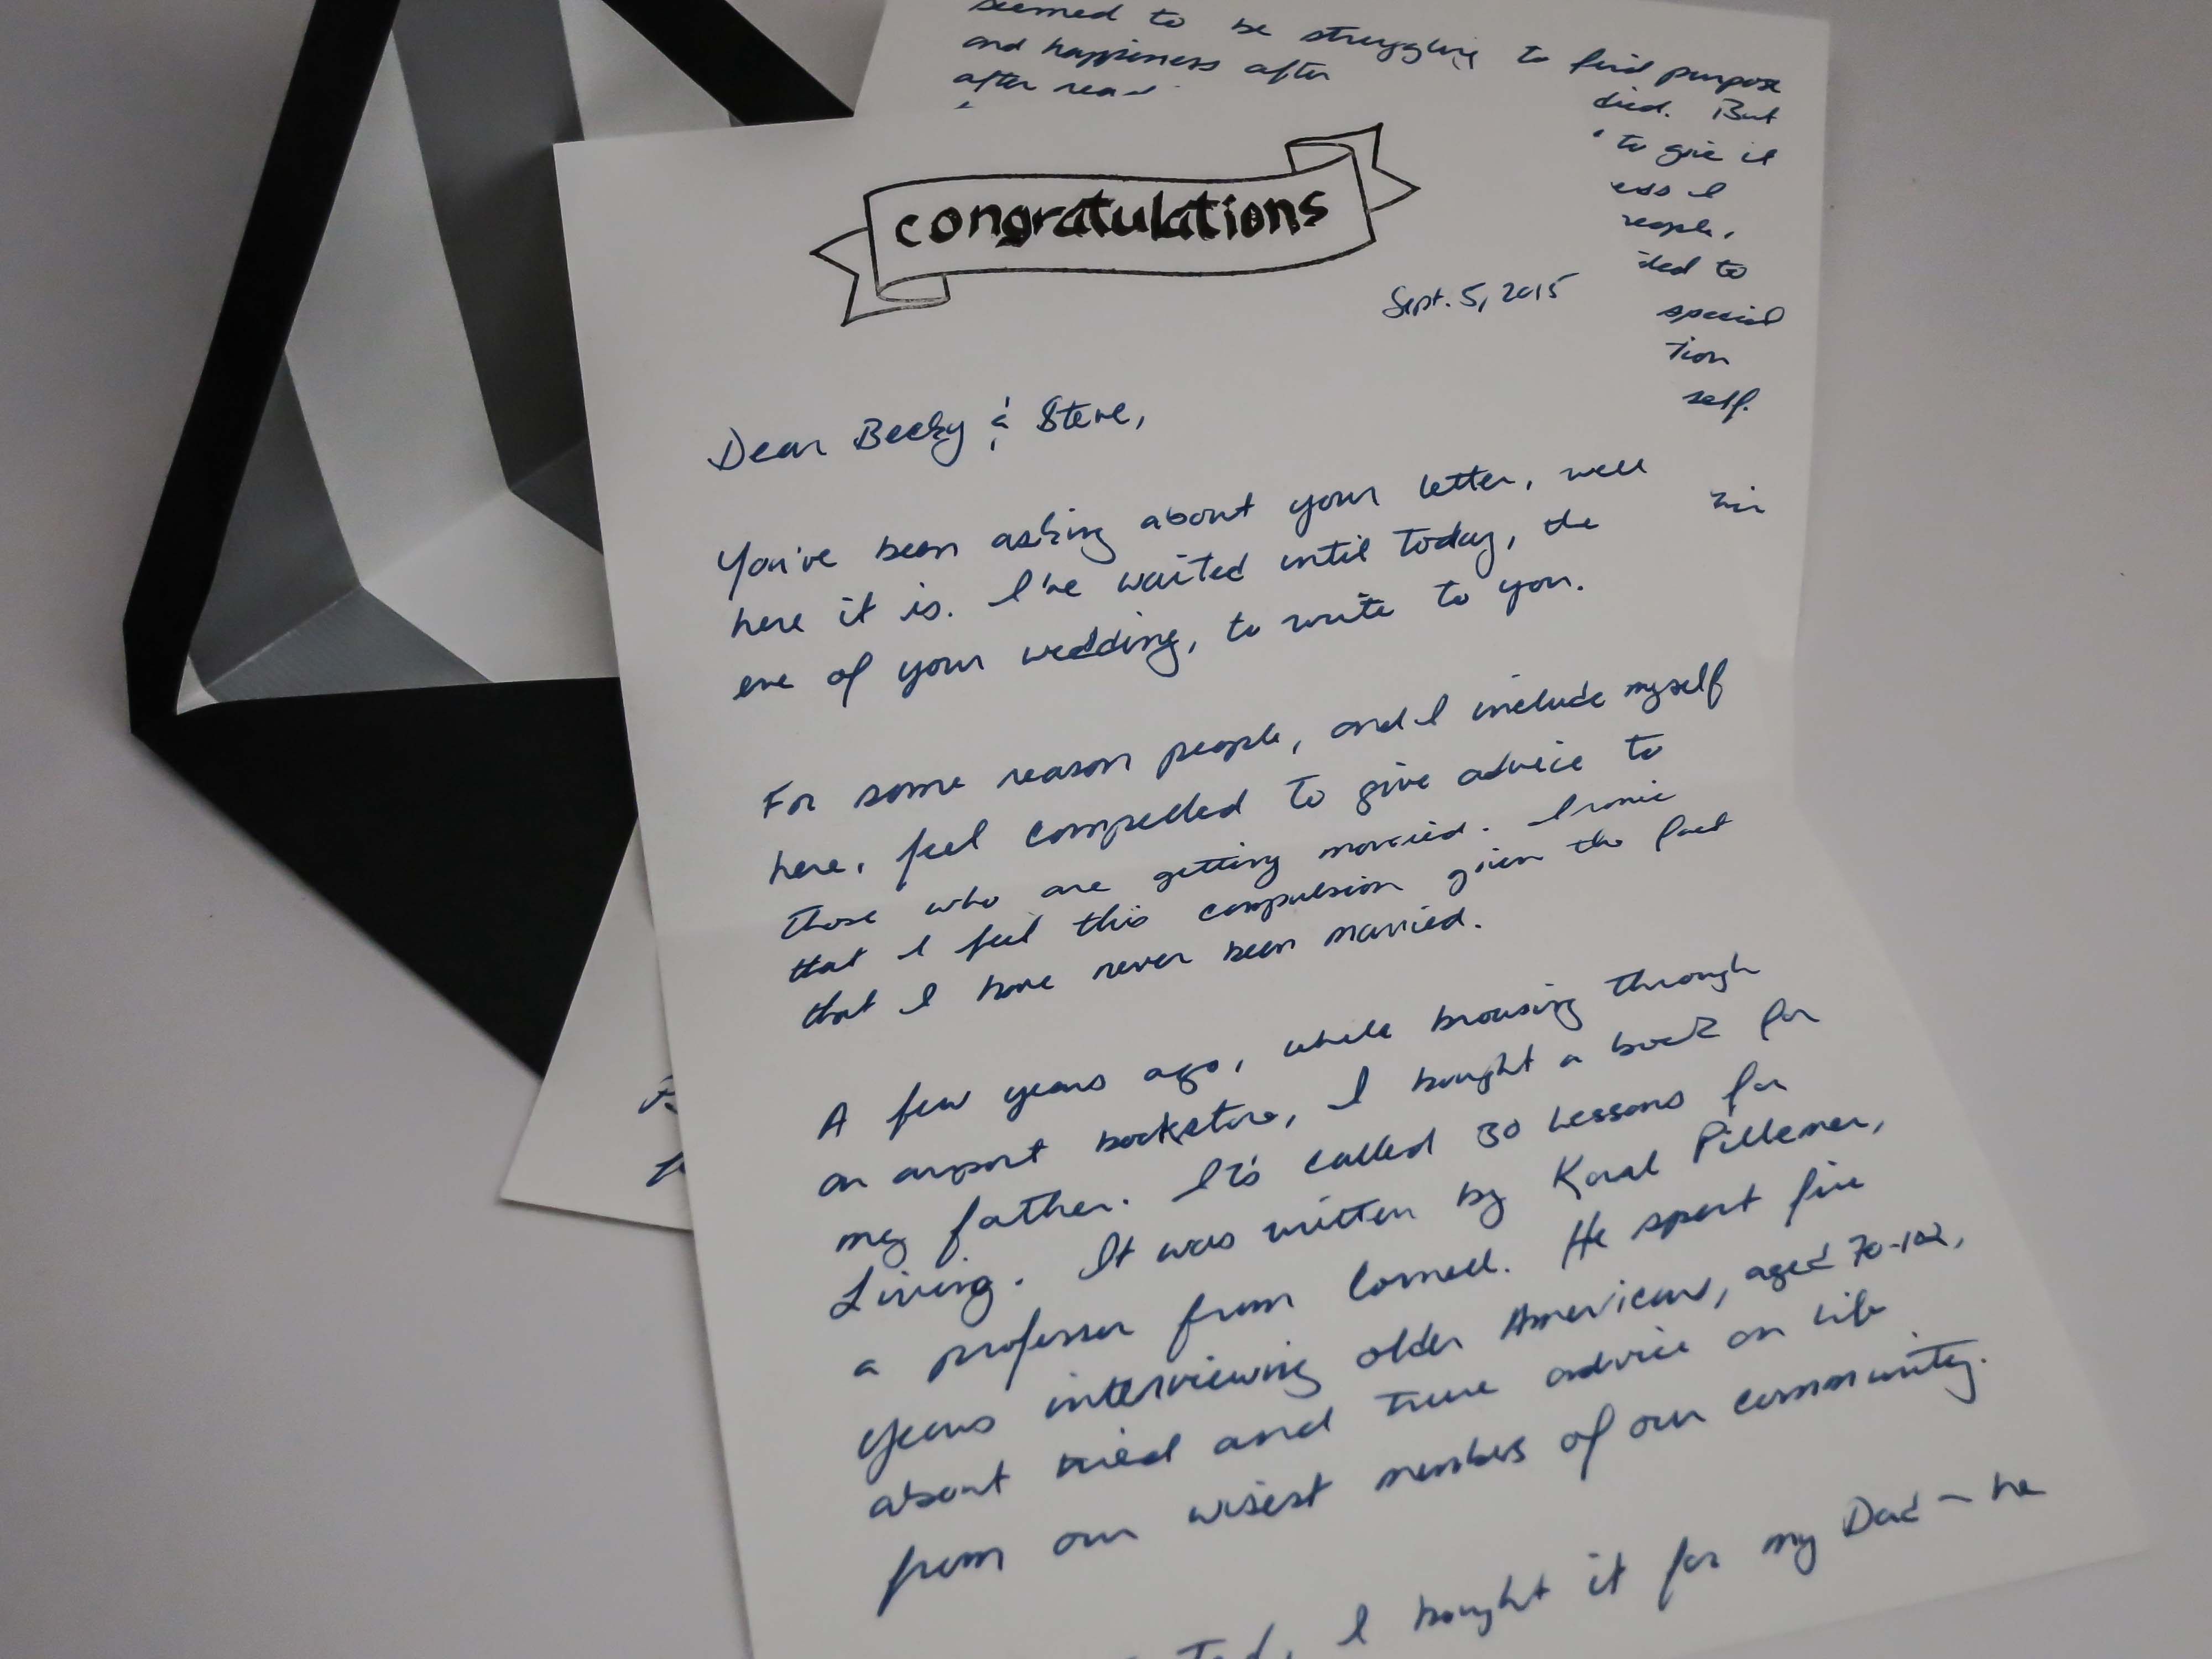 congratulations
Sept. 5, 2015
Dear Becky & Steve,
You've been asking about your letter, well
here it is. I've waited until today, the
eve of your wedding, to write to you.
For some reason people, and I include myself
here, feel compelled to give advice to
those who are getting married. Ironic
that I feel this compulsion given the fact
that I have never been married.
A few years ago, while browsing through
an airport bookstore, I bought a book for
my father. It's called 30 Lessons for
Living. It was written by Karl Pillemer,
a professor from Cornell. He spent five
years interviewing older Americans, aged 70-102,
about tried and true advice on life
from our wisest members of our community.
I bought it for my Dad - he
seemed to be struggling to find purpose
and happiness after died. But
after to give it
I
people,
to
special
self.